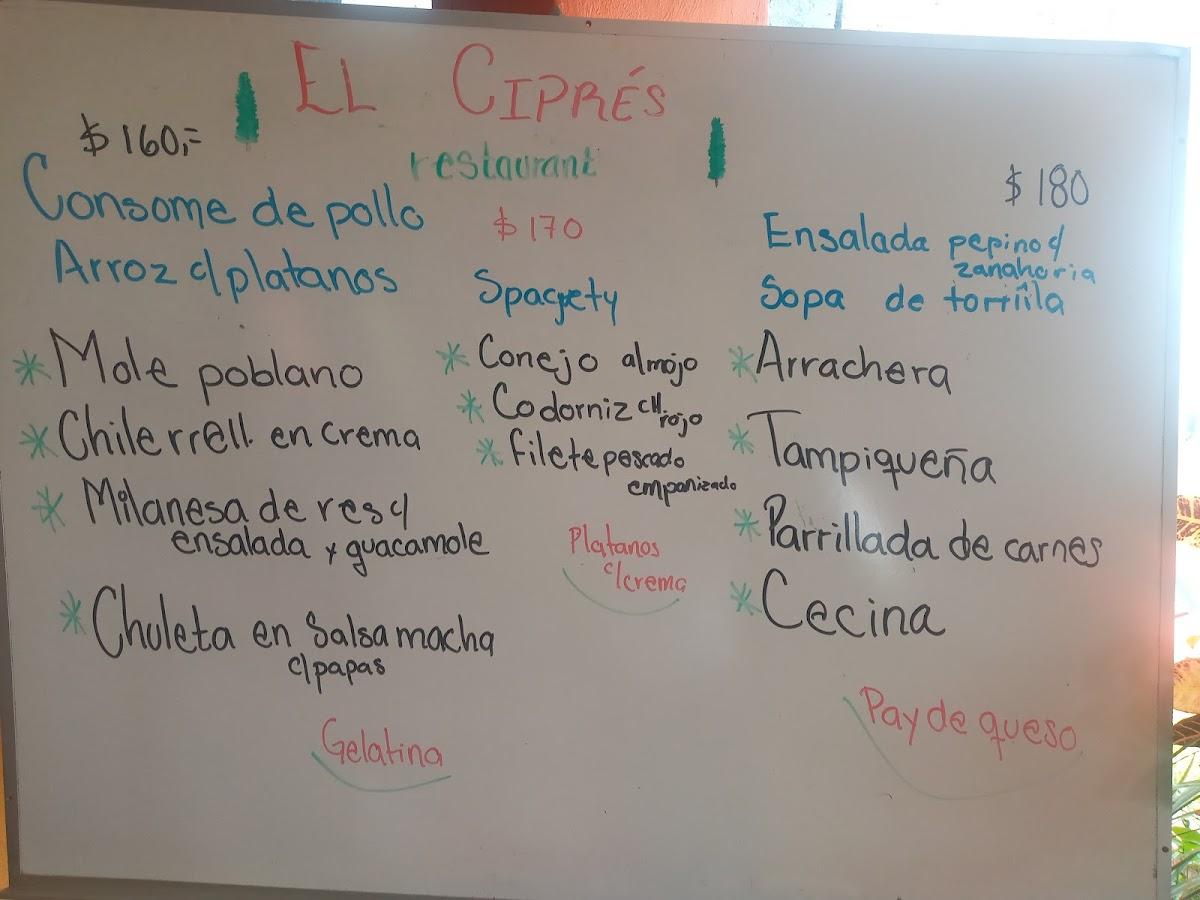 EL CIPRÉS
restaurant
$160,=
Consome de pollo
Arroz c/platanos
* Mole poblano
* Chile rrell. en crema
* Milanesa de res c/
ensalada y guacamole
* Chuleta en Salsa macha
c/papas
Gelatina
$170
Spagety
* Conejo almojo
* Codorniz CH.
rojo
* filete pescado
empanizado
Platanos
c/crema
$180
Ensalada pepino c/
zanahoria
Sopa de tortiila
* Arrachera
* Tampiqueña
* Parrillada de carnes
* Cecina
Pay de queso